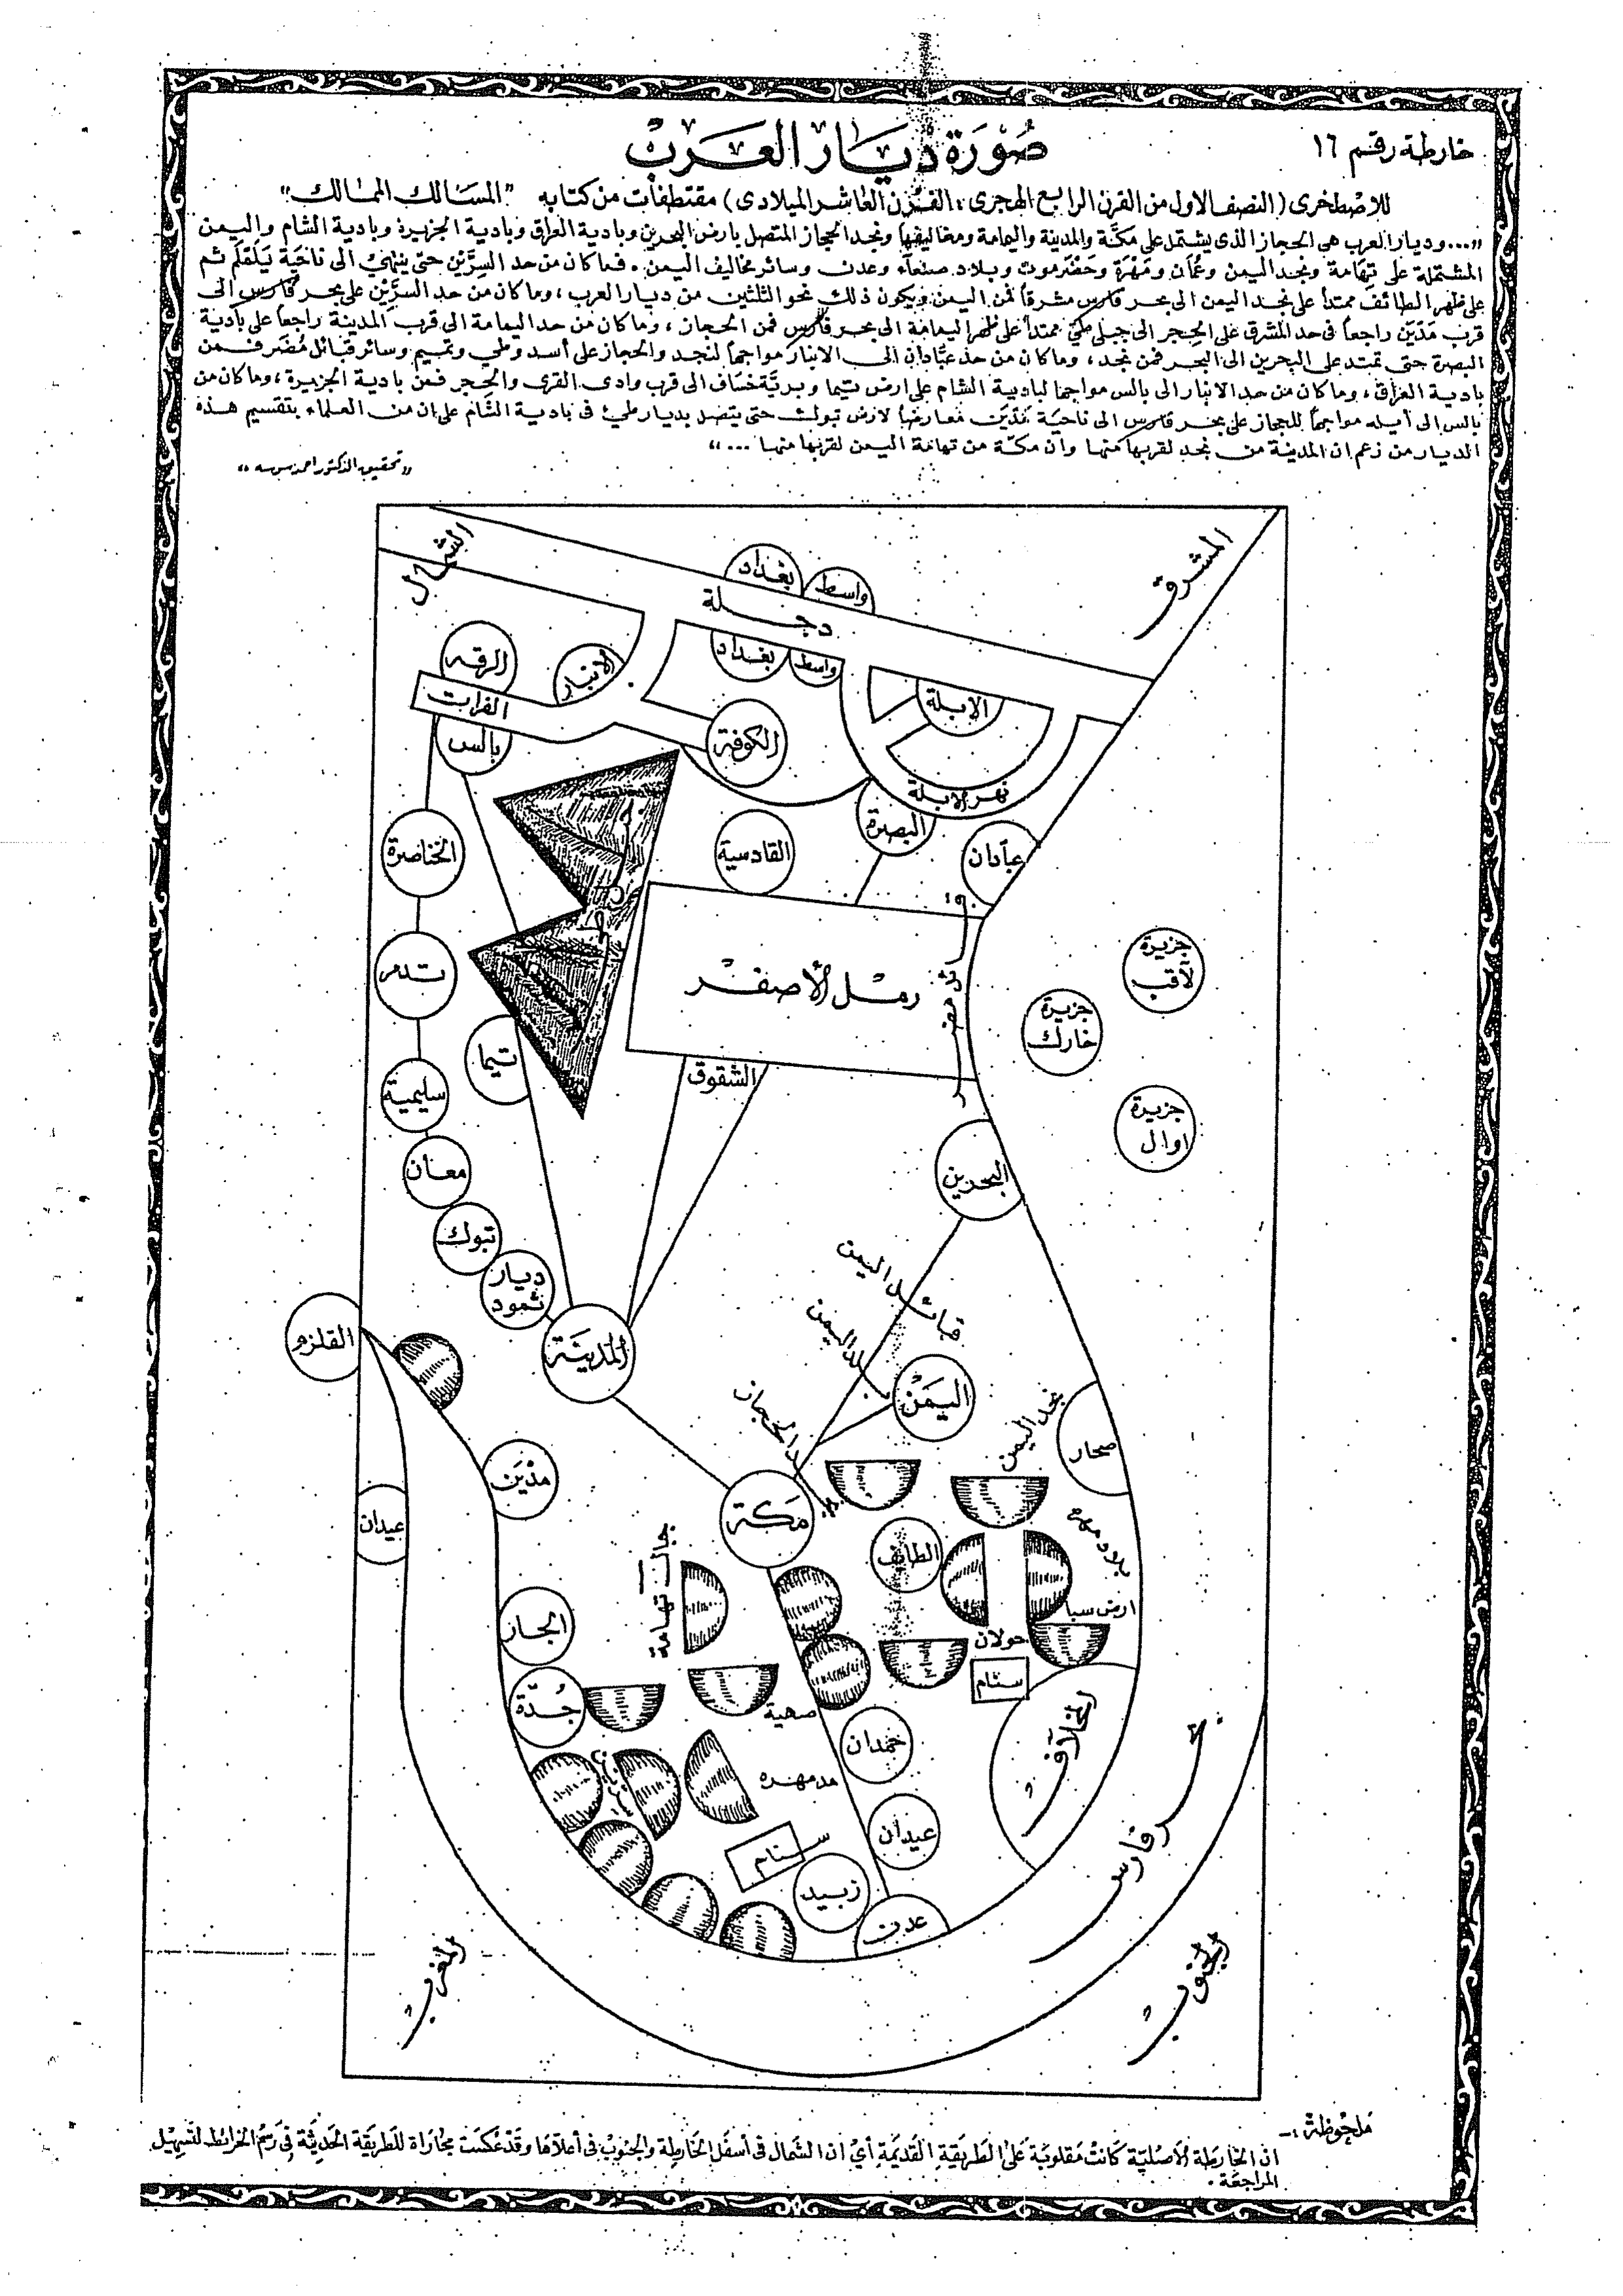 خارطة رقم ١٦
صُوْرَة دْيَار العَرَبْ
للاصطخرى (النصف الاول من القرن الرابع الهجرى ؛ القرن العاشر الميلادى) مقتطفات من كتابه "المسالك الممالك"
"... وديار العرب هي الحجاز الذى يشتمل على مكة والمدينة واليمامة ومخاليفها ونجد الحجاز المتصل بارض البحرين وبادية العراق وبادية الجزيرة وبادية الشام واليمن
المشتملة على تهامة ونجد اليمن وعُمان ومَهْرَة وحَضْرموت وبلاد صنعاء وعدن وسائر مخاليف اليمن . فما كان من حد السِرَّيْن حتى ينتهي الى ناحية يَلَمْلَم ثم
على ظهر الطائف ممتداً على نجد اليمن الى بحر فارس مشرقاً فمن اليمن ويكون ذلك نحو الثلثين من ديار العرب ، وما كان من حد السرَّيْن على بحر فارس الى
قرب مَدْيَن راجعاً فى حد المشرق على الحِجر الى جبلى طيّ ممتداً على ظهر اليمامة الى بحر فارس فمن الحجاز ، وما كان من حد اليمامة الى قرب المدينة راجعاً على بادية
البصرة حتى تمتد على البحرين الى البحر فمن نجد ، وما كان من حد عبّادان الى الانبار مواجهاً لنجد والحجاز على أسد وطي وتميم وسائر قبائل مُضَر فمن
بادية العراق ، وما كان من حد الانبار الى بالس مواجها لبادية الشام على ارض تيما وبريّة خساف الى قرب وادى القرى والحِجر فمن بادية الجزيرة ، وما كان من
بالس الى أيله مواجهاً للحجاز على بحر فارس الى ناحية مَدْيَن معارضاً لارض تبوك حتى يتصل بديار طيء فى بادية الشام على ان من العلماء بتقسيم هذه
الديار من زعم ان المدينة من نجد لقربها منها وان مكة من تهامة اليمن لقربها منها ... "
"تحقيق الدكتور احمد سوسه"
الشمال
المشرق
بغداد
واسط
دجلة
بغداد
واسط
الرقه
الانبار
الفرات
بالس
الابلة
الكوفة
نهر الابلة
الخناصرة
القادسية
البصرة
عبادان
تدمر
رمل الأصفر
جزيرة
لآقب
جزيرة
خارك
تيما
الشقوق
سليمية
جزيرة
اوال
معان
البحرين
تبوك
ديار
ثمود
القلزم
المدينة
قبائل اليمن
بلاد اليمن
اليمن
نجد اليمن
صحار
مدين
عيدان
مكة
الطائف
بلاد مهره
جبال تهامة
ارض سبا
الجار
خولان
سنام
جُدّة
المخلاف
همدان
سنام
عيدان
زبيد
عدن
بحر فارس
المغرب
الجنوب
ملحوظة :-
ان الخارطة الاصلية كانت مقلوبة على الطريقة القديمة أي ان الشمال فى أسفل الخارطة والجنوب فى أعلاها وقد عكست مجاراة للطريقة الحديثة في رسم الخرائط لتسهيل
المراجعة .